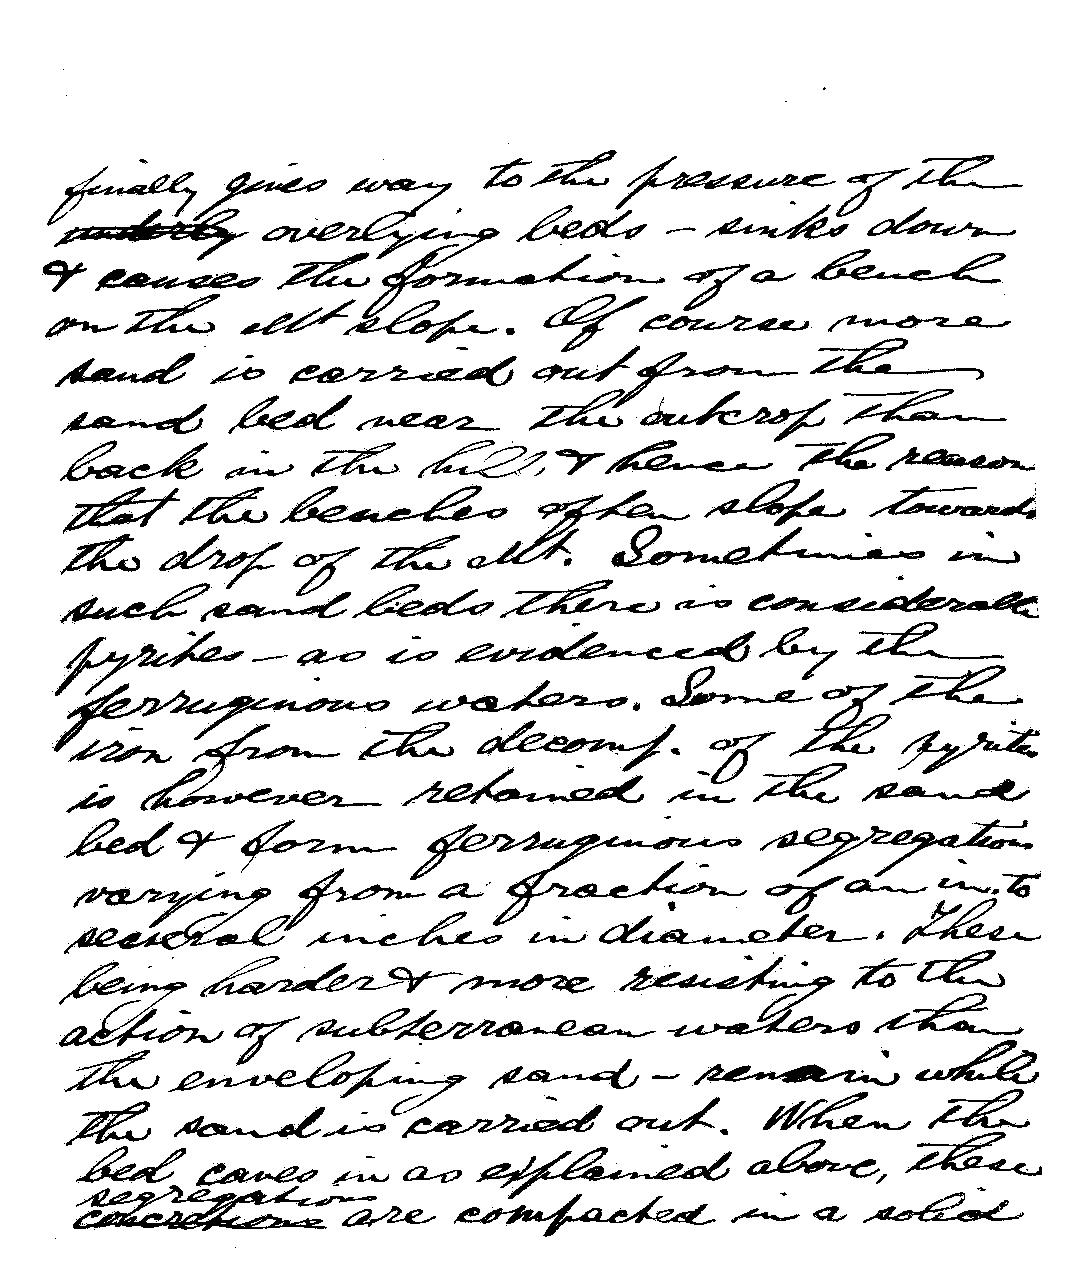 finally gives way to the pressure of the
underly overlying beds – sinks down
& causes the formation of a bench
on the Mt slope. Of course more
sand is carried out from the
sand bed near the outcrop than
back in the hill, & hence the reason
that the benches often slope towards
the drop of the Mt. Sometimes in
such sand beds there is considerable
pyrites – as is evidenced by the
ferruginous waters. Some of the
iron from the decomp. of the pyrites
is however retained in the sand
bed & form ferruginous segregations
varying from a fraction of an in. to
several inches in diameter. These
being harder & more resisting to the
action of subterranean waters than
the enveloping sand – remain while
the sand is carried out. When the
bed caves in as explained above, these
segregations
concretions are compacted in a solid